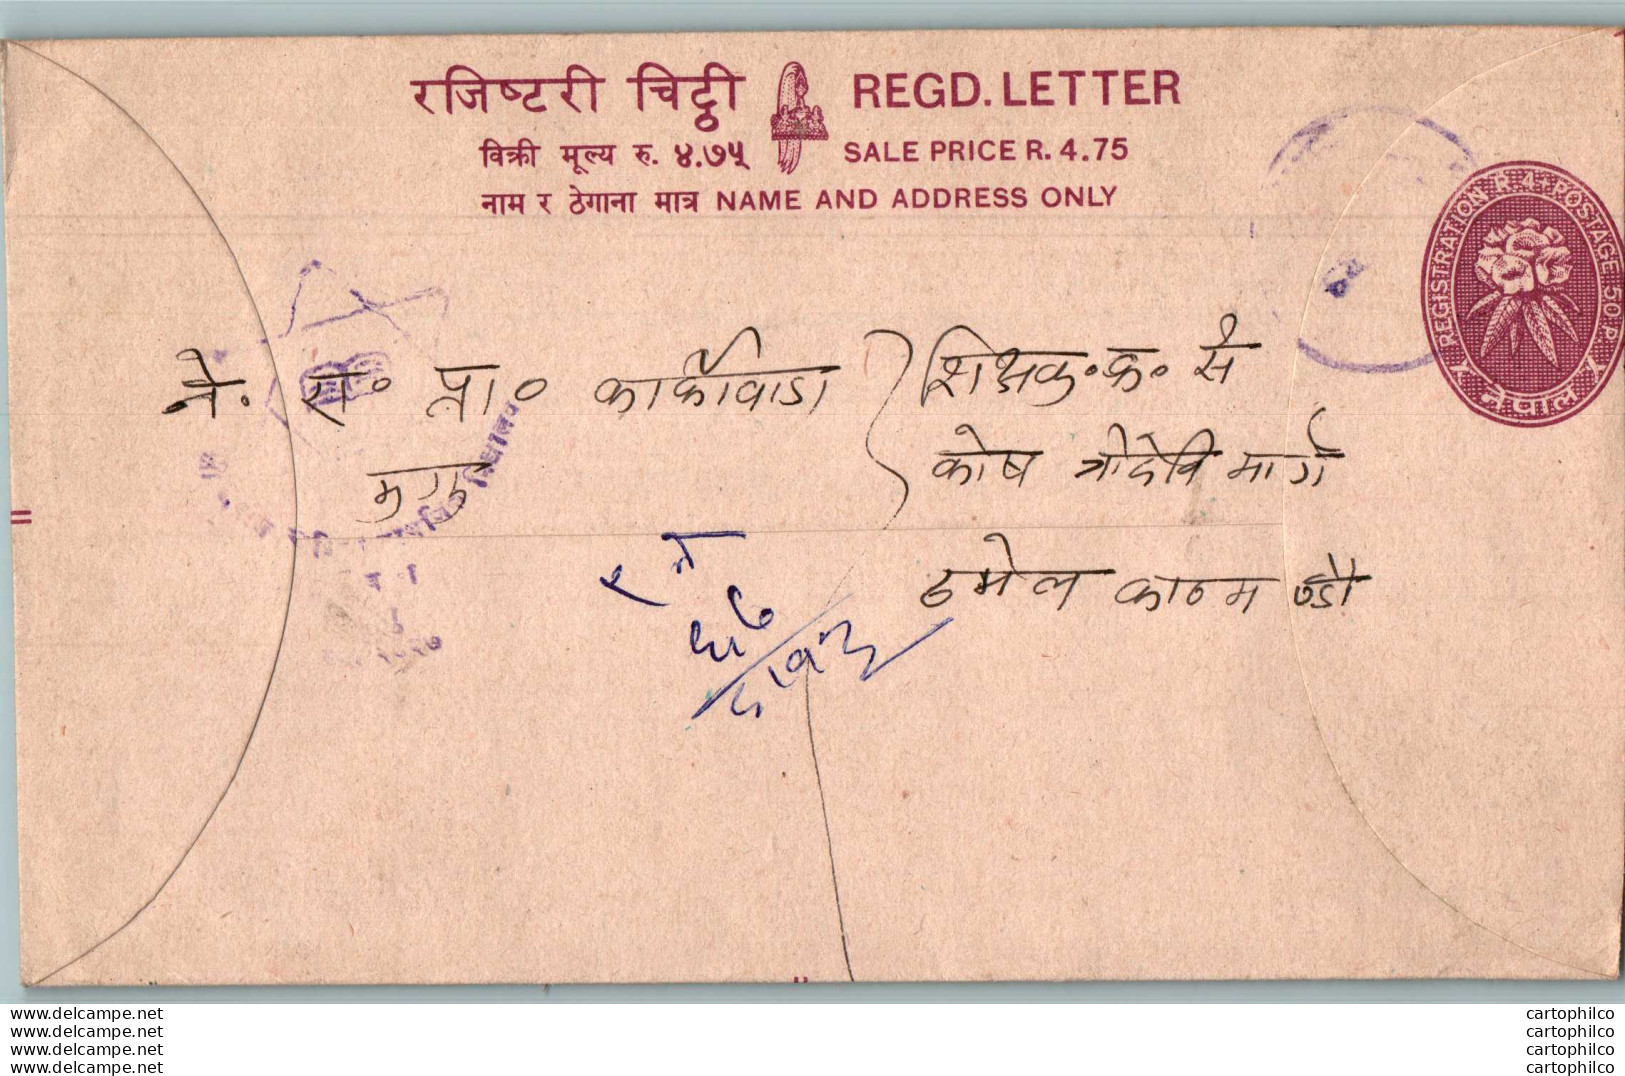 रजिष्टरी चिट्ठी REGD. LETTER
विक्री मूल्य रु. ४.७५ SALE PRICE R. 4.75
नाम र ठेगाना मात्र NAME AND ADDRESS ONLY
REGISTRATION R 4. POSTAGE 50 P.
नेपाल
ने. रा० प्रा० कार्कीवाडा
मुगु
शिक्षक.क.सं
कोष त्रीदेवि मार्ग
ठमेल काठमाण्डौ
www.delcampe.net
www.delcampe.net
www.delcampe.net
www.delcampe.net
cartophilco
cartophilco
cartophilco
cartophilco